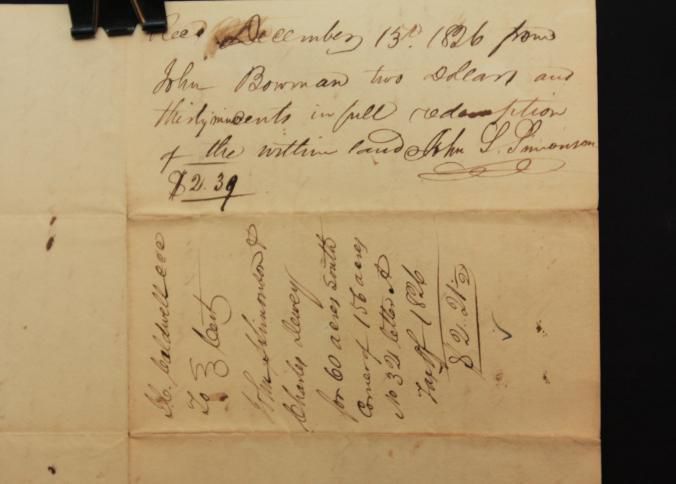 Recd December 13d. 1826 from
John Bowman two dollars and
thirtyninecents in full redemption
of the within land John S. Simonson
$2.39
Caldwell
To Cert
John S Simonson &
Charles Dewey
for 60 acres South
Corner of 156 acres
No 32 letter A
Tax of 1826
$2.21